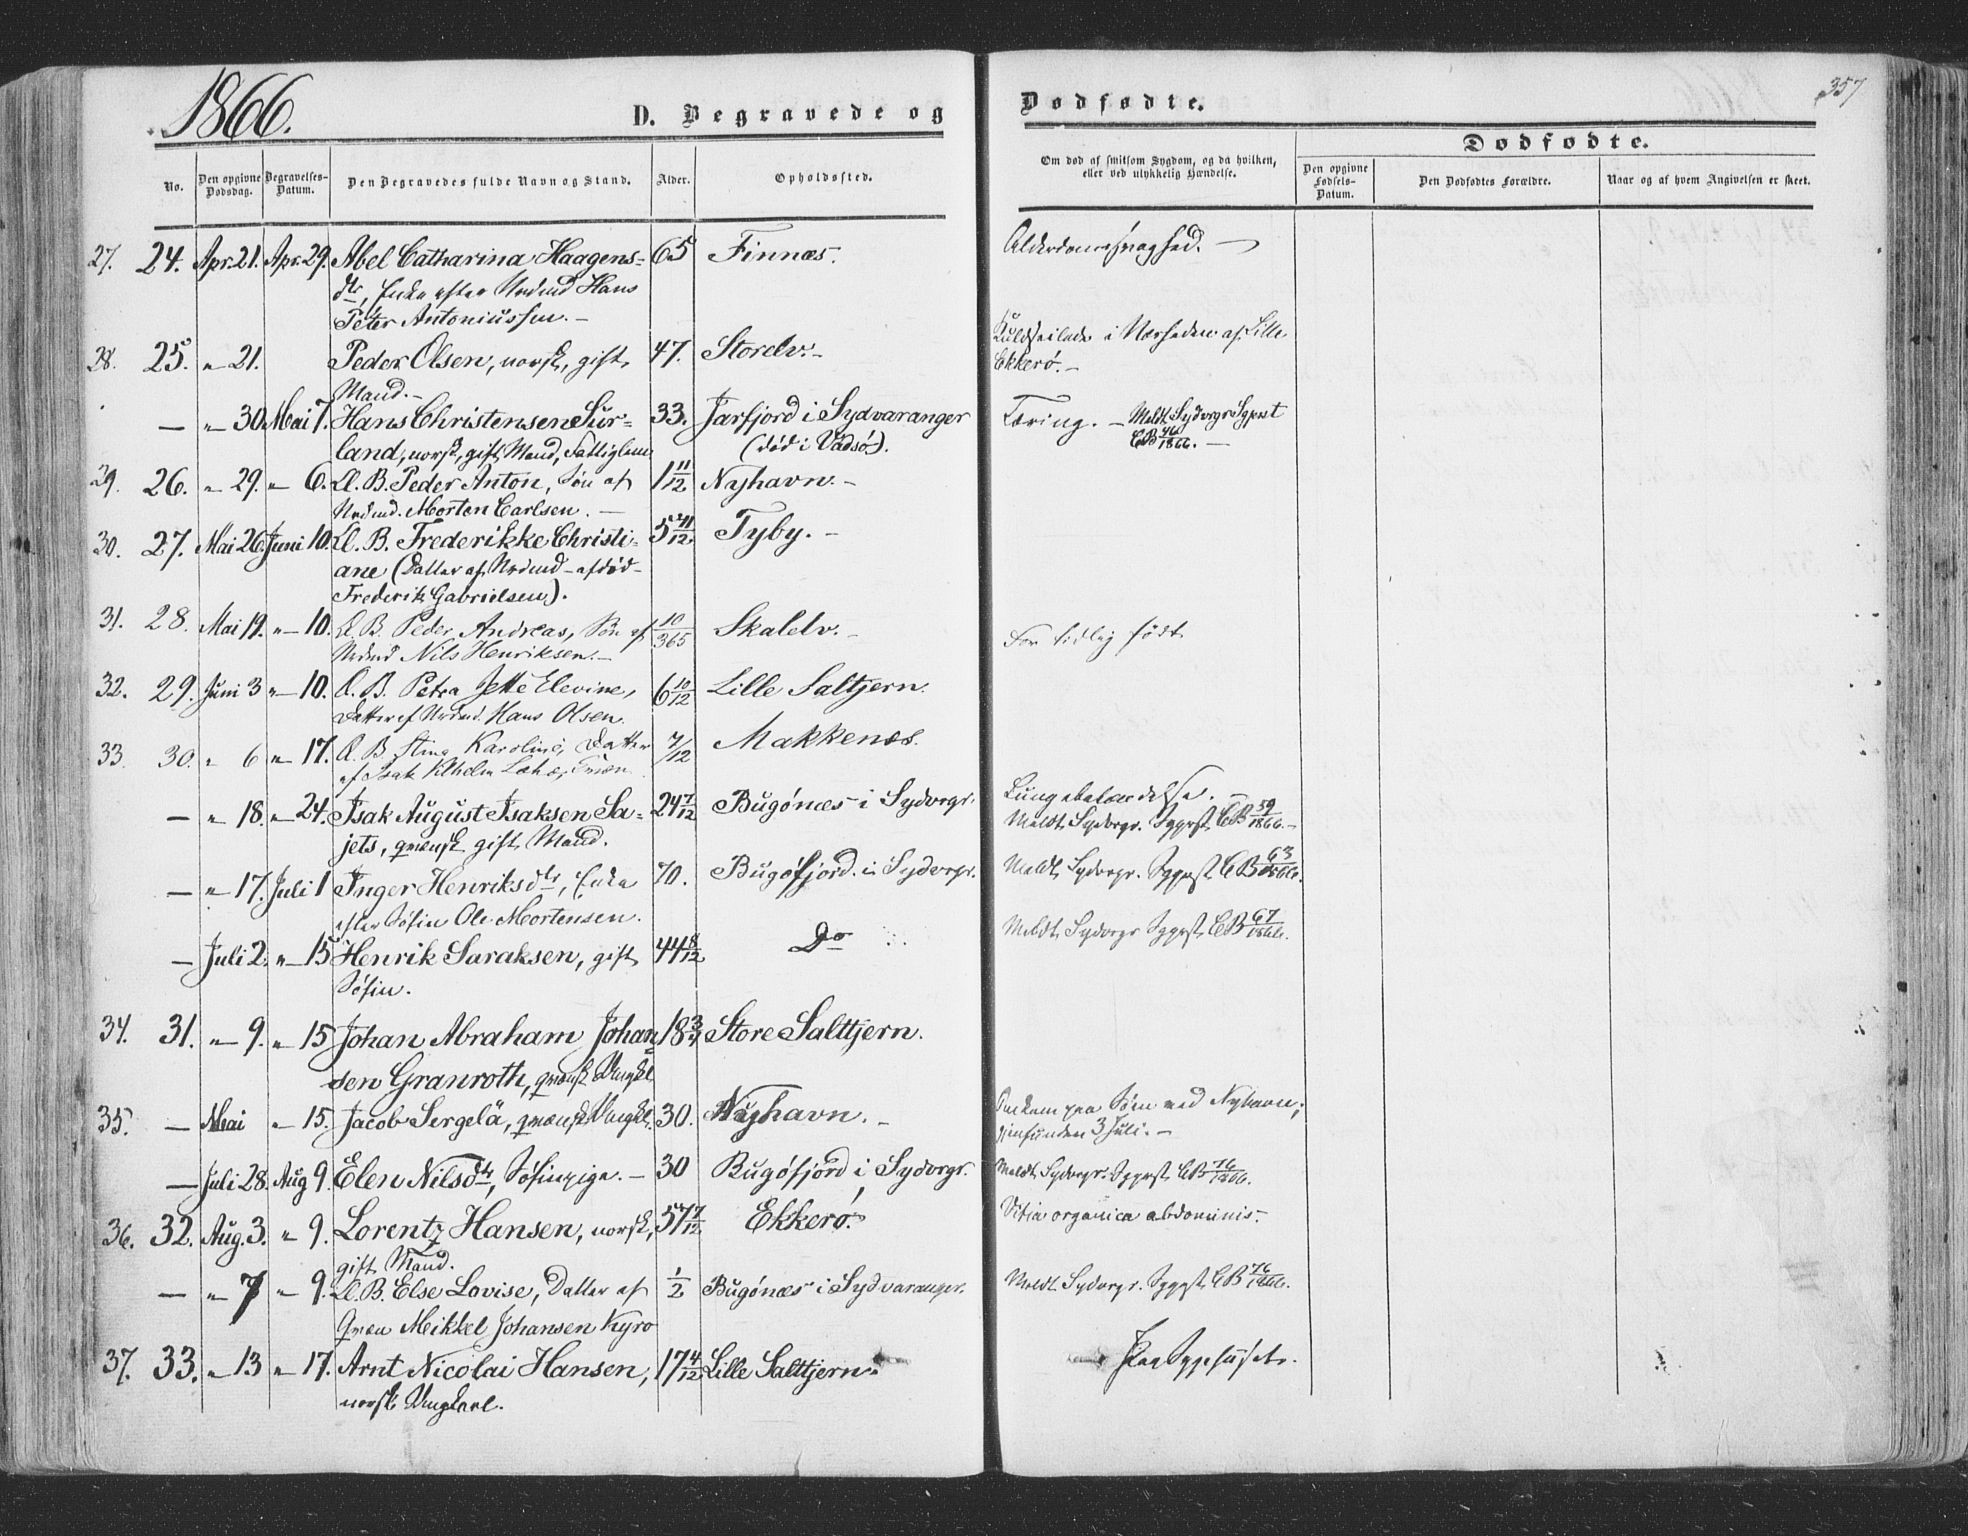 1866.
D. Begravede og Dødfødte.
357
Dødfødte.
No.
Den opgivne Dødsdag.
Begravelses-Datum.
Den Begravedes fulde Navn og Stand.
Alder.
Opholdssted.
Om død af smitsom Sygdom, og da hvilken,
eller ved ulykkelig Hændelse.
Den opgivne Fødsels-Datum.
Den Dødfødtes Forældre.
Naar og af hvem Angivelsen er skeet.
27. 24. Apr. 21. Apr. 29. Abel Catharina Haagens= 65 Finnæs. Alderdomssvaghed. —
dtr, Enke efter Nrdmd Hans
Peter Antoniussen. —
28. 25. " 21. Peder Olsen, norsk, gift 47. Storelv. — Kuldseilede i Nærheden af Lille
Mand. — Ekkerø. —
— " 30. Mai 7. Hans Christensen Sur= 33. Jarfjord i Sydvaranger Tæring. — Meldt Sydvrgr Sgprst
land, norsk, gift Mand, Fattiglem (død i Vadsø). CB 46/1866. —
29. 26. " 29. " 6. D. B. Peder Anton, Søn af 1 11/12 Nyhavn. —
Nrdmd. Morten Carlsen. —
30. 27. Mai 26. Juni 10. D. B. Frederikke Christi= 5 11/12 Tyby. —
ane (Datter af Nrdmd — afdød —
Frederik Gabrielsen).
31. 28. Mai 19. " 10. D. B. Peder Andreas, Søn af 10/365 Skalelv. — For tidlig født
Nrdmd Nils Henriksen. —
32. 29. Juni 3 " 10. D. B. Petra Jette Elevine, 6 10/12 Lille Saltjern.
Datter af Nrdmd. Hans Olsen.
33. 30. " 6 " 17. D. B. Stina Karoline, Datter 7/12 Makkenæs.
af Isak
— " 18. " 24. Isak August Isaksen Sa= 24 7/12 Bugønæs i Sydvrgr. Lungebetændelse. —
jets, qvænsk gift Mand. Meldt Sydvrgr. Sgprst CB 59/1866. —
— " 17. Juli 1 Inger Henriksdtr, Enke 70. Bugøfjord i Sydvrgr. Meldt Sydvrgr. Sgprst CB 63/1866.
efter Søfin Ole Mortensen.
— Juli 2. " 15 Henrik Saraksen, gift 44 8/12 Do Meldt Sydvrgr Sgprst CB 67/1866.
Søfin.
34. 31. " 9. " 15 Johan Abraham Johan= 18 3/4 Store Salttjern.
sen Granroth, qvænsk Ungkl
35. — Mai " 15. Jacob Sergelä, qvænsk Ungkl. 30. Nyhavn. — Omkom paa Søen ved Nyhavn;
gjenfunden 3 Juli. —
— Juli 28. Aug 9. Elen Nilsdtr, Søfinpige. — 30 Bugøfjord i Sydvrgr. Meldt Sydvrgr. Sgprst CB 76/1866.
36. 32. Aug. 3. " 9. Lorentz Hansen, norsk, 57 7/12 Ekkerø. Vitia organica abdominis. —
gift Mand.
— " 7 " 9. D. B. Else Lovise, Datter af 1/2 Bugønæs i Sydvaranger. Meldt Sydvrgr. Sgprst CB 76/1866.
Qvæn Mikkel Johansen Kyro
37. 33. " 13 " 17. Arnt Nicolai Hansen, 17 4/12 Lille Salttjern. Paa Sygehuset.
norsk Ungkarl.